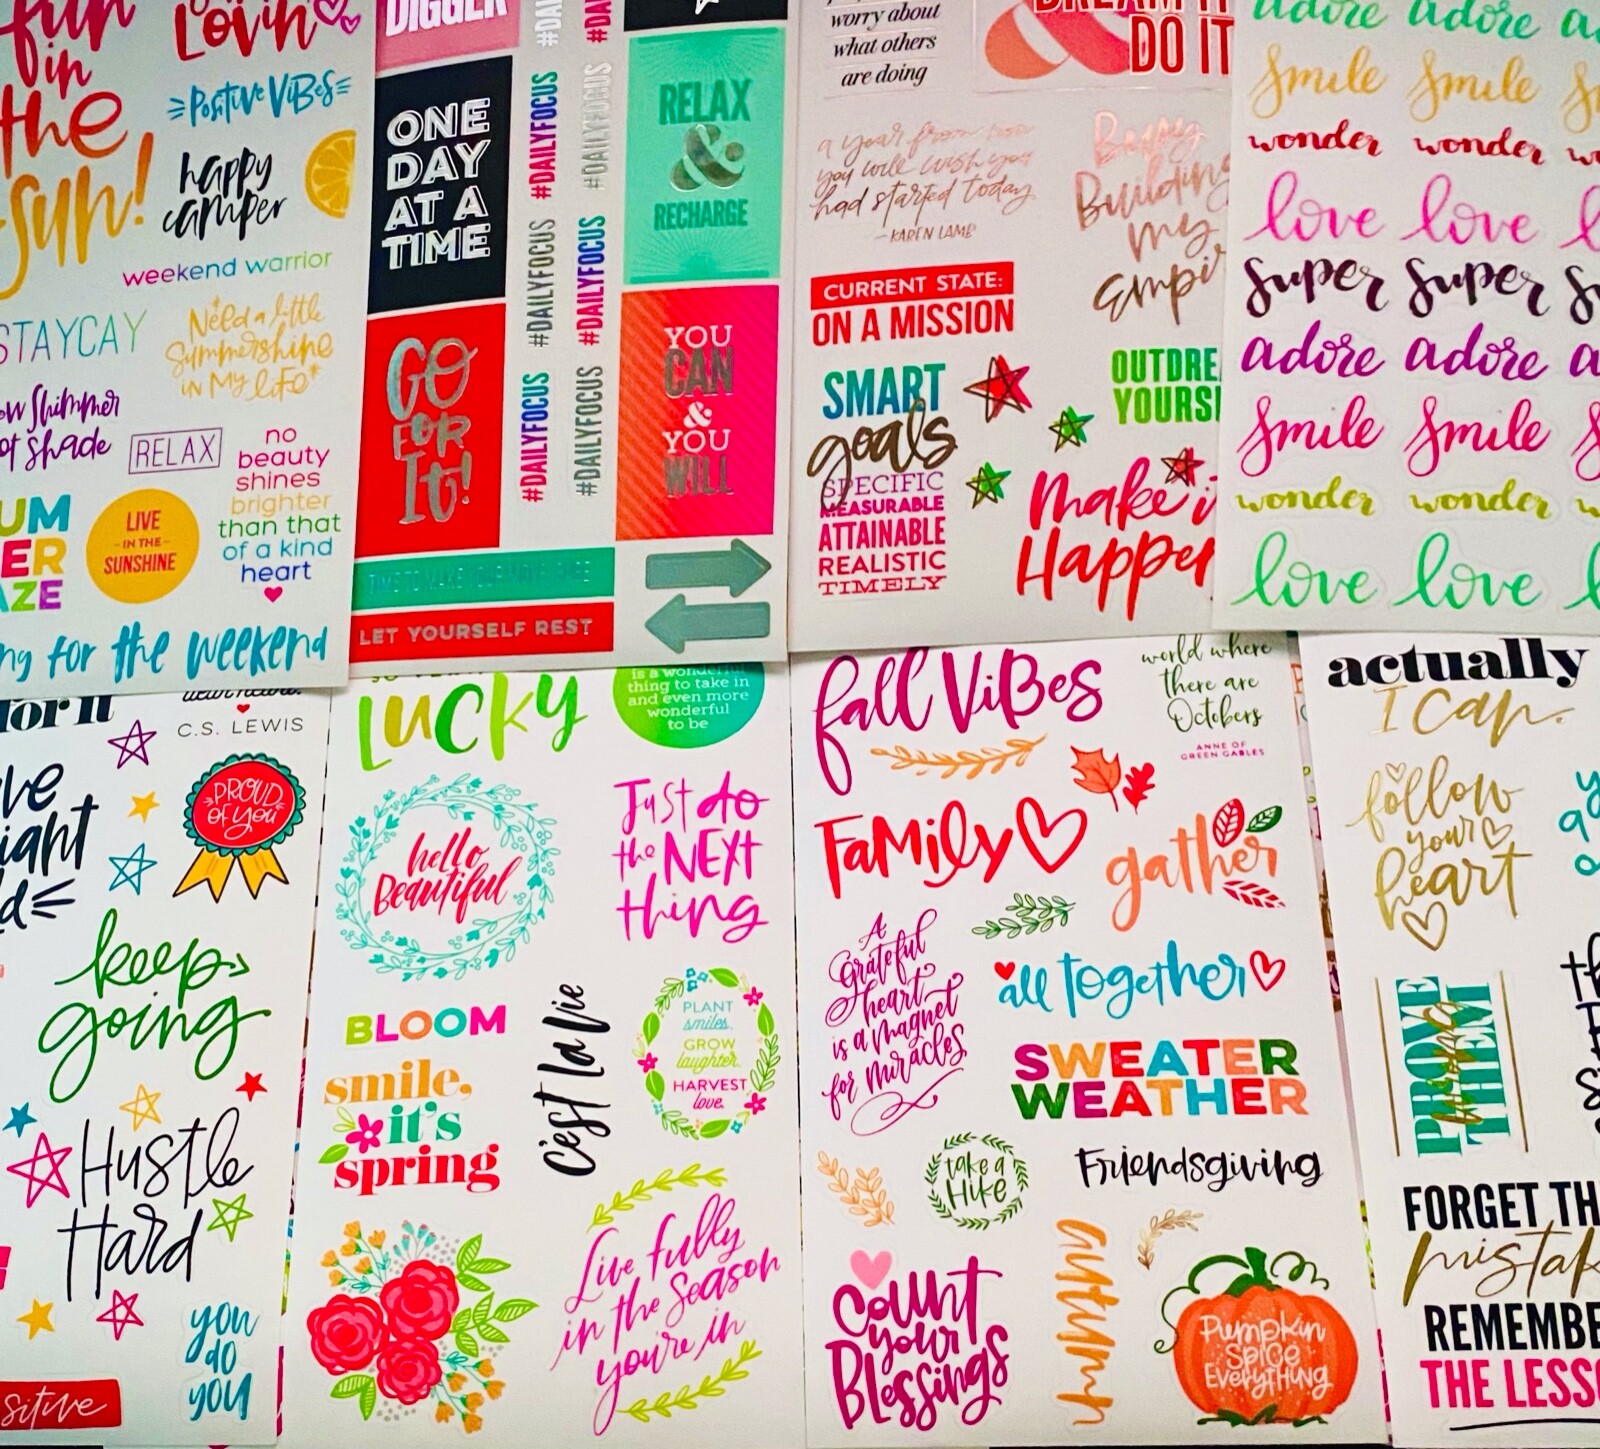 fun
in
the
sun!
Lovin'
Positive Vibes
happy
camper
weekend warrior
STAYCAY
Need a little
summershine
in my life
shimmer
shade
RELAX
no
beauty
shines
brighter
than that
of a kind
heart
LIVE
IN THE
SUNSHINE
for the weekend
DIGGER
ONE
DAY
AT A
TIME
GO
FOR
It!
#DAILYFOCUS
#DAILYFOCUS
#DAILYFOCUS
#DAILYFOCUS
#DAILYFOCUS
#DAILYFOCUS
RELAX
&
RECHARGE
YOU
CAN
&
YOU
WILL
LET YOURSELF REST
worry about
what others
are doing
DREAM IT
DO IT
a year from now
you will wish you
had started today
—KAREN LAMB
Busy
Building
my
CURRENT STATE:
ON A MISSION
SMART
goals
SPECIFIC
MEASURABLE
ATTAINABLE
REALISTIC
TIMELY
make
Happen
adore adore
smile smile
wonder wonder
love love
super super
adore adore
smile smile
wonder wonder
love love
for it
C.S. LEWIS
PROUD
of you
keep
going
Hustle
Hard
you
do
you
Lucky
is a wonderful
thing to take in
and even more
wonderful
to be
hello
Beautiful
Just do
the NEXT
thing
BLOOM
smile,
it's
spring
C'est La Vie
PLANT
smiles,
GROW
laughter,
HARVEST
love.
Live fully
in the Season
you're in
fall ViBes
world where
there are
Octobers
ANNE OF
GREEN GABLES
FaMily
gather
A
grateful
heart
is a magnet
for miracles
all together
SWEATER
WEATHER
take a
Hike
Friendsgiving
Count
your
Blessings
autumn
Pumpkin
Spice
Everything
actually
I can.
follow
your
heart
PROVE
THEM
FORGET
THE